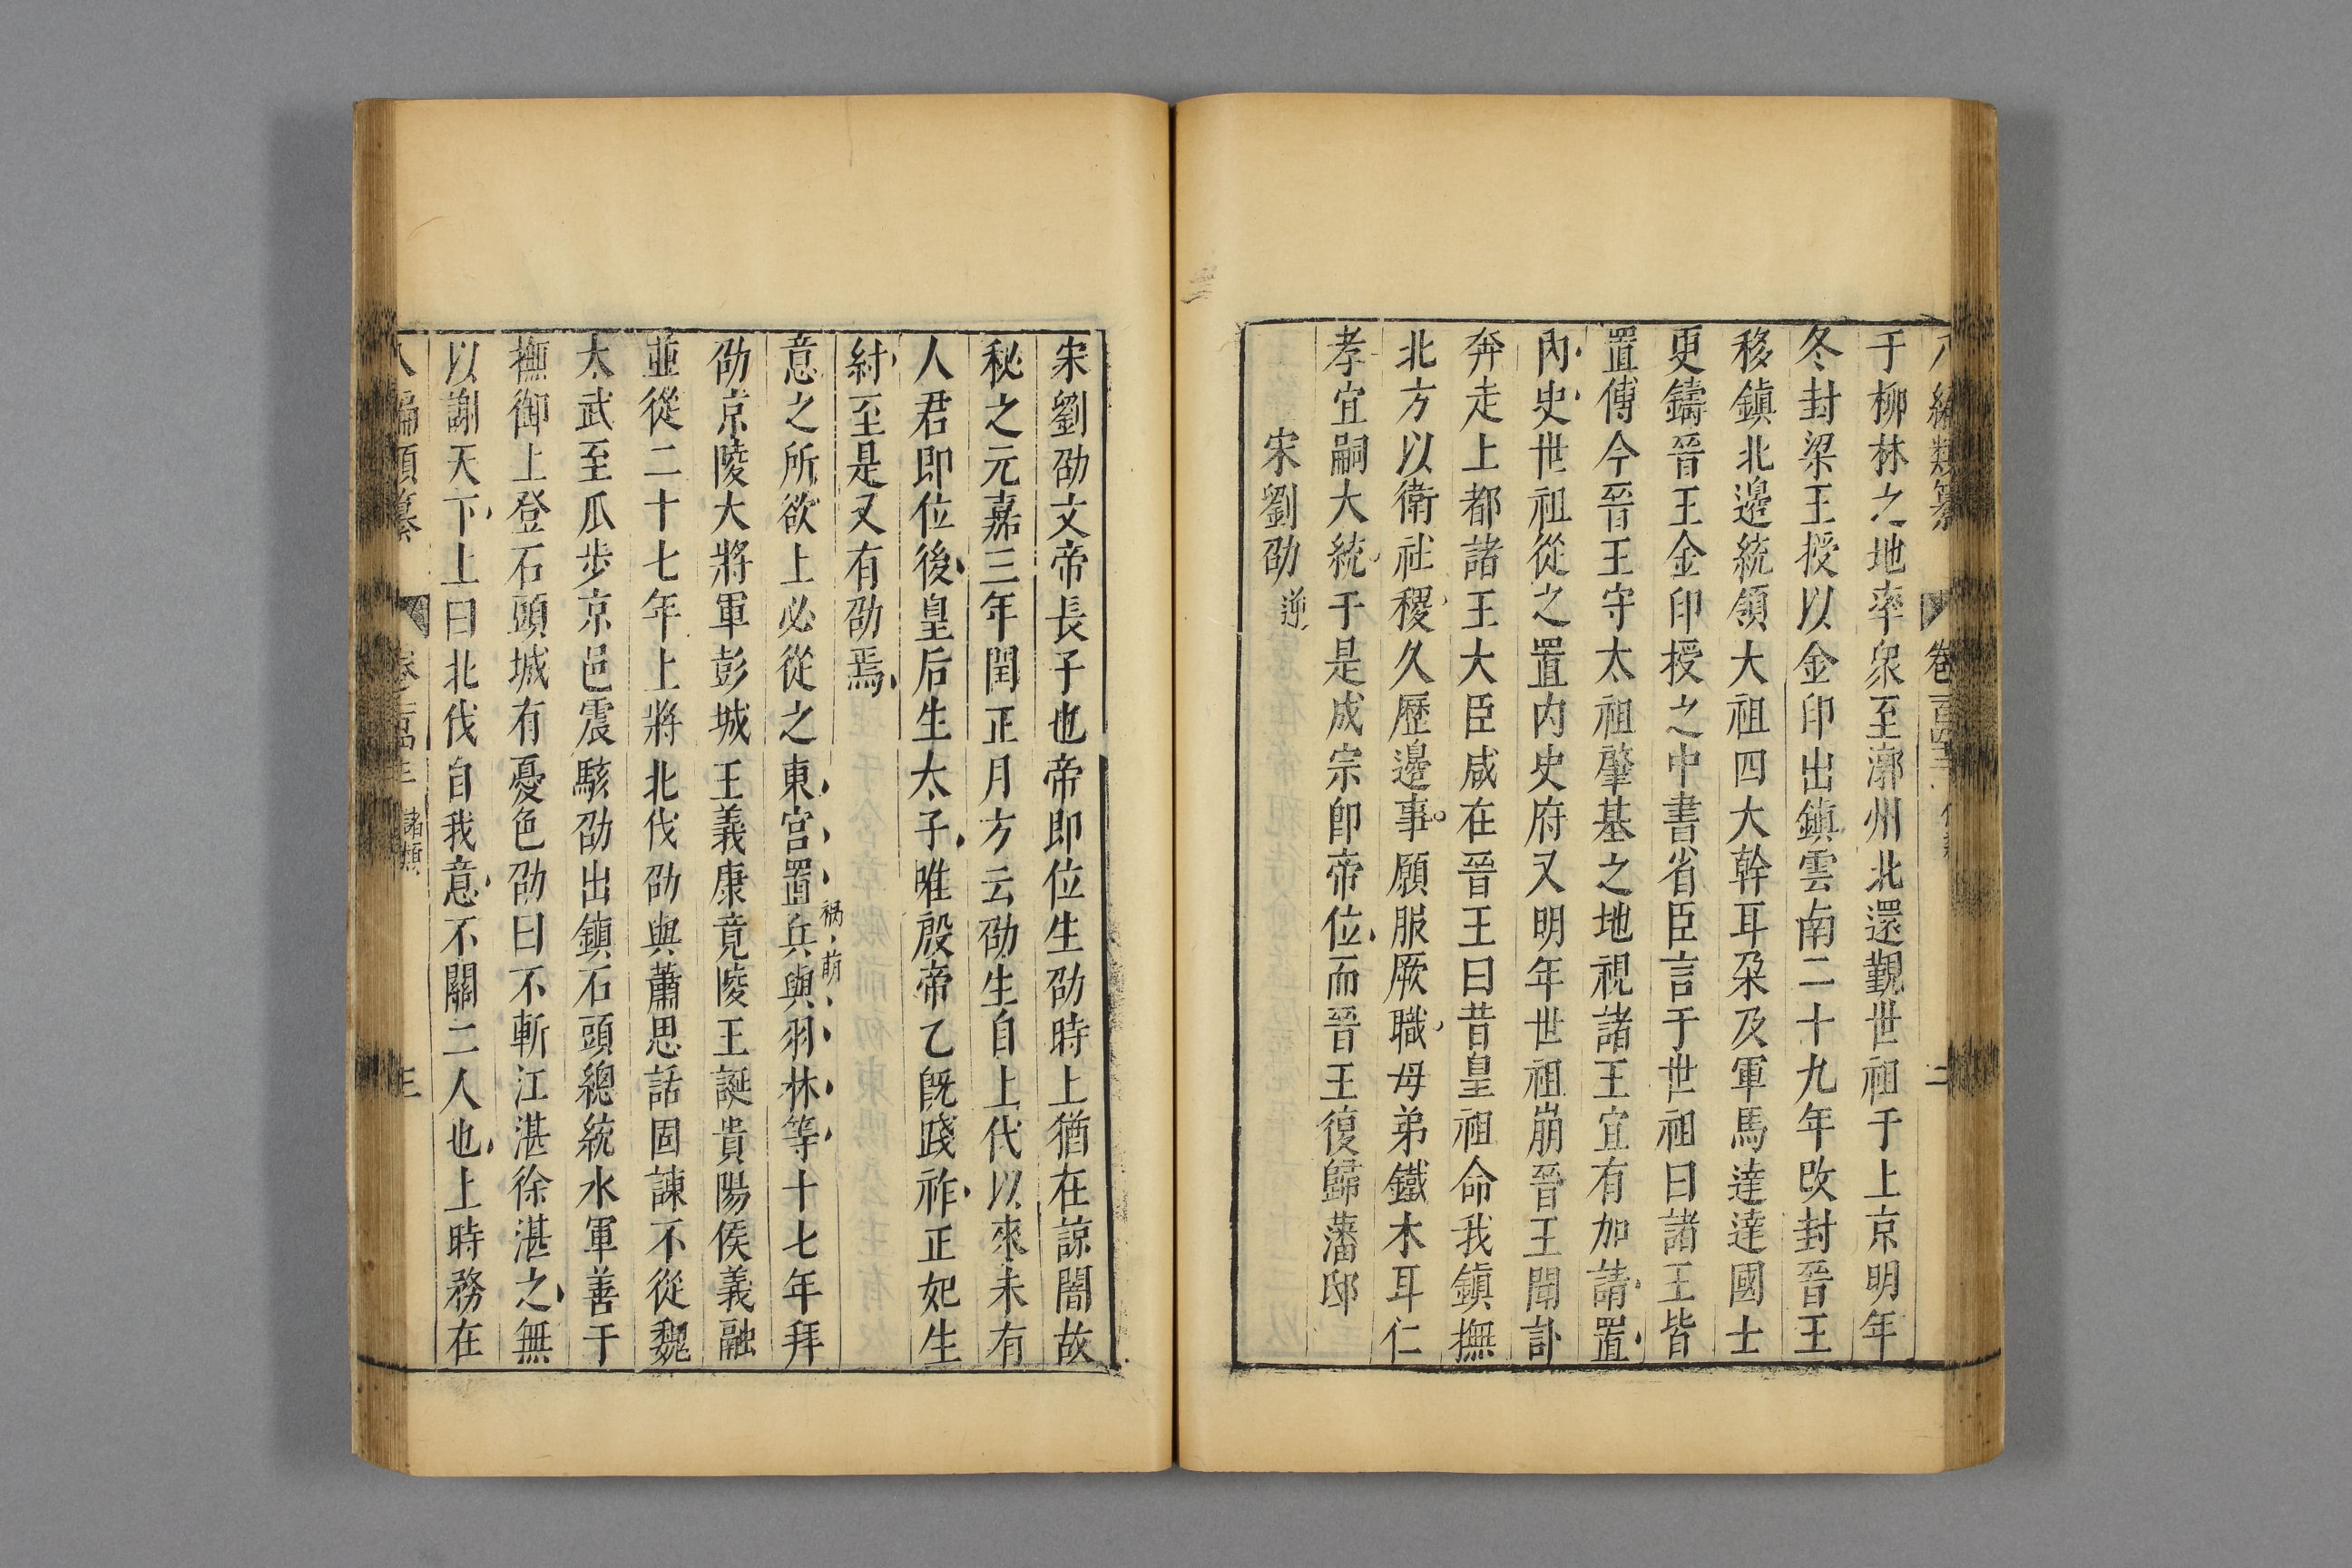 編類纂 卷一百 二
于柳林之地率衆至漷州北還觀世祖于上京明年
冬封梁王授以金印出鎮雲南二十九年改封晉王
移鎮北邊統領大祖四大幹耳朶及軍馬達達國士
更鑄晉王金印授之中書省臣言于世祖曰諸王皆
置傅今晉王守太祖肇基之地視諸王宜有加請置
內史世祖從之置内史府又明年世祖崩晉王聞訃
奔走上都諸王大臣咸在晉王曰昔皇祖命我鎮撫
北方以衛社稷久歷邊事願服厥職母弟鐵木耳仁
孝宜嗣大統于是成宗即帝位而晉王復歸藩邸
宋劉劭逆
宋劉劭文帝長子也帝即位生劭時上猶在諒闇故
秘之元嘉三年閏正月方云劭生自上代以來未有
人君即位後皇后生太子唯殷帝乙既踐祚正妃生
紂至是又有劭焉
禍萌
意之所欲上必從之東宮置兵與羽林等十七年拜
劭京陵大將軍彭城王義康竟陵王誕貴陽侯義融
並從二十七年上將北伐劭與蕭思話固諫不從魏
太武至瓜步京邑震駭劭出鎮石頭總統水軍善于
撫御上登石頭城有憂色劭曰不斬江湛徐湛之無
以謝天下上曰北伐自我意不關二人也上時務在
編類纂 卷一百 諸類 三